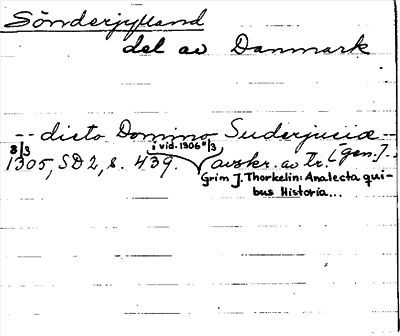 Sönderjylland
del av Danmark
-- dicto Domino Suderjuciæ --
8/3 i vid. 1306 8/3
1305, SD 2, s. 439. avskr. av tr. [gen.].
Grim J. Thorkelin: Analecta qui-
bus Historia...